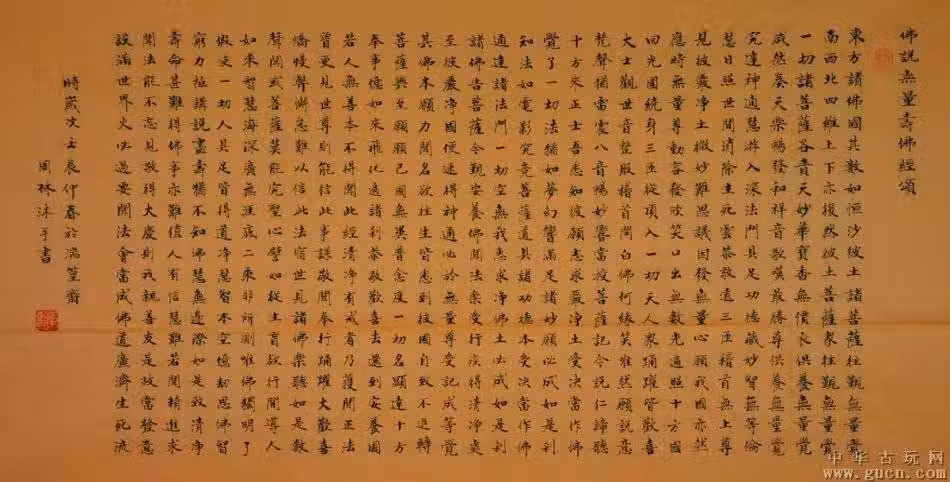 佛說無量壽佛經頌
東方諸佛國其數如恒沙彼土諸菩薩往覲無量覺
南西北四維上下亦復然彼土菩薩眾往覲無量覺
一切諸菩薩各賫天妙華寶香無價衣供養無量覺
咸然奏天樂暢發和雅音歌歎最勝尊供養無量覺
究達神通慧遊入深法門具足功德藏妙智無等倫
慧日照世間消除生死雲恭敬遶三匝稽首無上尊
見彼嚴淨土微妙難思議因發無量心願我國亦然
應時無量尊動容發欣笑口出無數光遍照十方國
回光圍繞身三匝從頂入一切天人眾踊躍皆歡喜
大士觀世音整服稽首問白佛何緣笑唯然願說意
梵聲猶雷震八音暢妙響當授菩薩記今說仁諦聽
十方來正士吾悉知彼願志求嚴淨土受決當作佛
覺了一切法猶如夢幻響滿足諸妙願必成如是剎
知法如電影究竟菩薩道具諸功德本受決當作佛
通達諸法門一切空無我求淨土必成如是剎
諸佛告菩薩令覲安養佛聞法樂受行疾得清淨處
至彼嚴淨國便速得神通必於無量尊受記成等覺
其佛本願力聞名欲往生皆悉到彼國自致不退轉
菩薩興至願願己國無異普念度一切名顯達十方
奉事億如來飛化遍諸剎恭敬歡喜去還到安養國
若人無善本不得聞此經清淨有戒者乃獲聞正法
曾更見世尊則能信此事謙敬聞奉行踊躍大歡喜
憍慢弊懈怠難以信此法宿世見諸佛樂聽如是教
聲聞或菩薩莫能究聖心譬如從生盲欲行開導人
如來智慧海深廣無涯底二乘非所測唯佛獨明了
假使一切人具足皆得道淨慧智本空億劫思佛智
窮力極講說盡壽猶不知佛慧無邊際如是致清淨
壽命甚難得佛亦難值人有信慧難若聞精進求
聞法能不忘見敬得大慶則我親善友是故當發意
設滿世界火必過要聞法會當成佛道廣濟生死流
時歲次壬辰仲春於篁齋
周林沐手書
中华古玩网
www.gucn.com